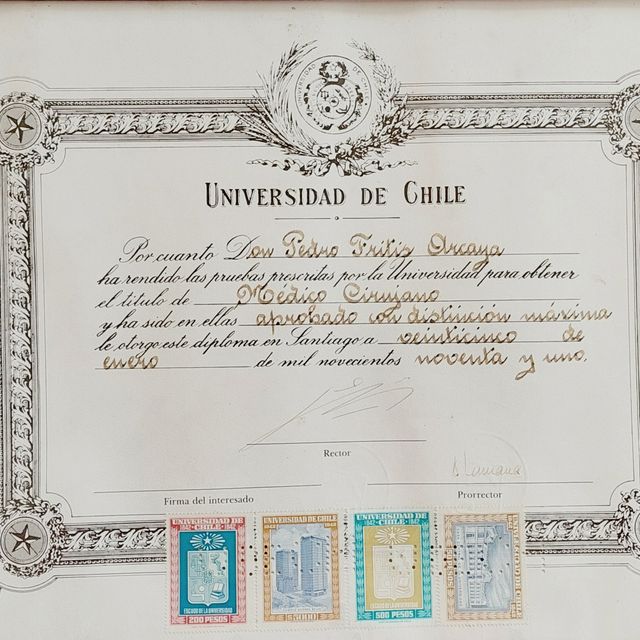 UNIVERSIDAD DE CHILE
Por cuanto Don Pedro Fritis Arcaya
ha rendido las pruebas prescritas por la Universidad para obtener
el título de Médico Cirujano
y ha sido en ellas aprobado con distinción máxima
le otorgo este diploma en Santiago a veinticinco de
enero de mil novecientos noventa y uno.
Rector
Firma del interesado
Prorrector
UNIVERSIDAD DE CHILE
1842 1942
ESCUDO DE LA UNIVERSIDAD
200 PESOS
UNIVERSIDAD DE CHILE
UNIVERSIDAD DE CHILE
1842 1942
ESCUDO DE LA UNIVERSIDAD
500 PESOS